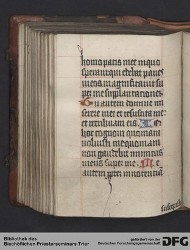 homo pacis mee in quo
speravi qui edebat panes
meos magnificavit su
per me supplantationem
Tu autem domine mi
serere mei et resuscita me
et retribuam eis In
hoc cognovi quoniam
voluisti me quoniam
non gaudebit inimicus
meus super me Me
autem propter innocentia
suscep
Bibliothek des
Bischöflichen Priesterseminars Trier
gefördert von der
DFG
Deutsche Forschungsgemeinschaft